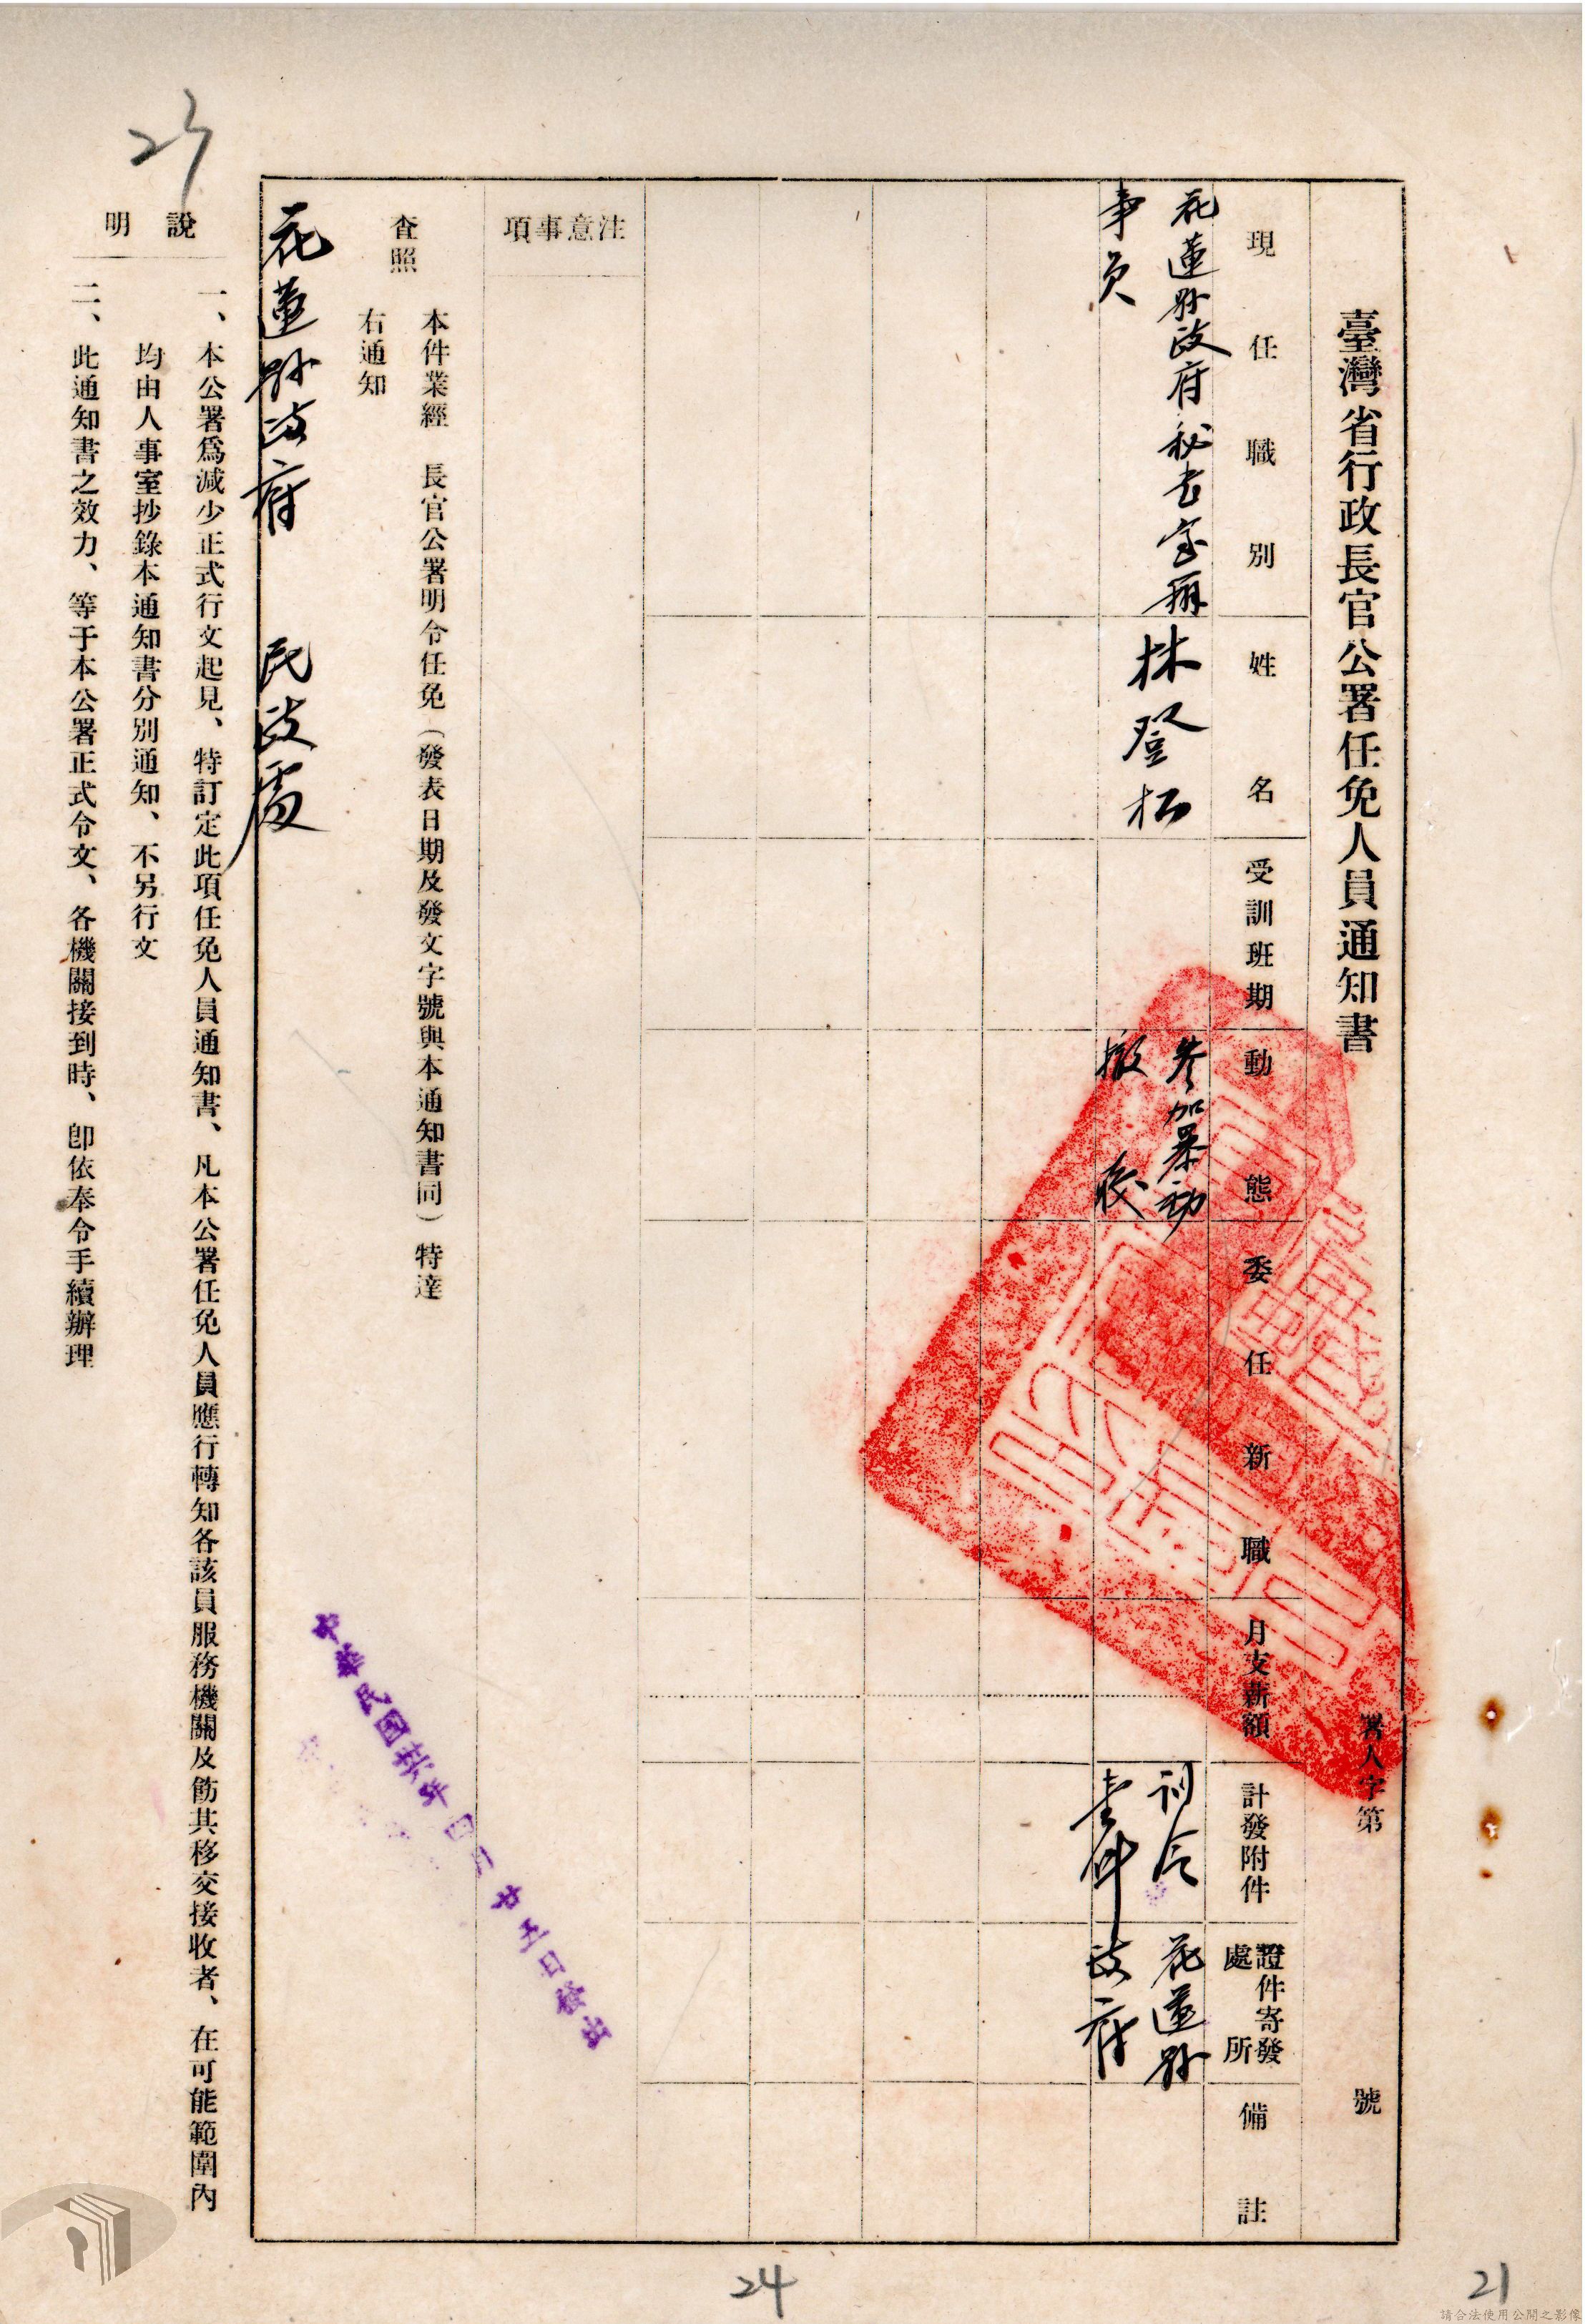 臺灣省行政長官公署任免人員通知書
署人字第 號
現任職別
姓名
受訓班期
動態
委任新職
月支薪額
計發附件
證件寄發處所
備註
花蓮縣政府秘書室辦
事員
林登
參加暴動
撤
訓令
壹件
花蓮縣
政府
注意事項
查照
本件業經 長官公署明令任免(發表日期及發文字號與本通知書同)特達
右通知
花蓮縣政府 民政處
中華民國卅六年四月廿五日發出
說明
一、本公署爲減少正式行文起見、特訂定此項任免人員通知書、凡本公署任免人員應行轉知各該員服務機關及飭其移交接收者、在可能範圍內
均由人事室抄錄本通知書分別通知、不另行文
二、此通知書之效力、等于本公署正式令文、各機關接到時、卽依奉令手續辦理
24
21
請合法使用公開之影像